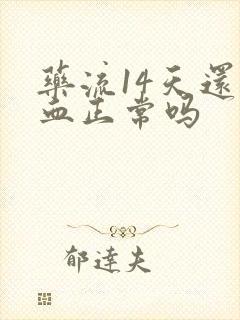 藥流14天還
血正常吗
郁達夫